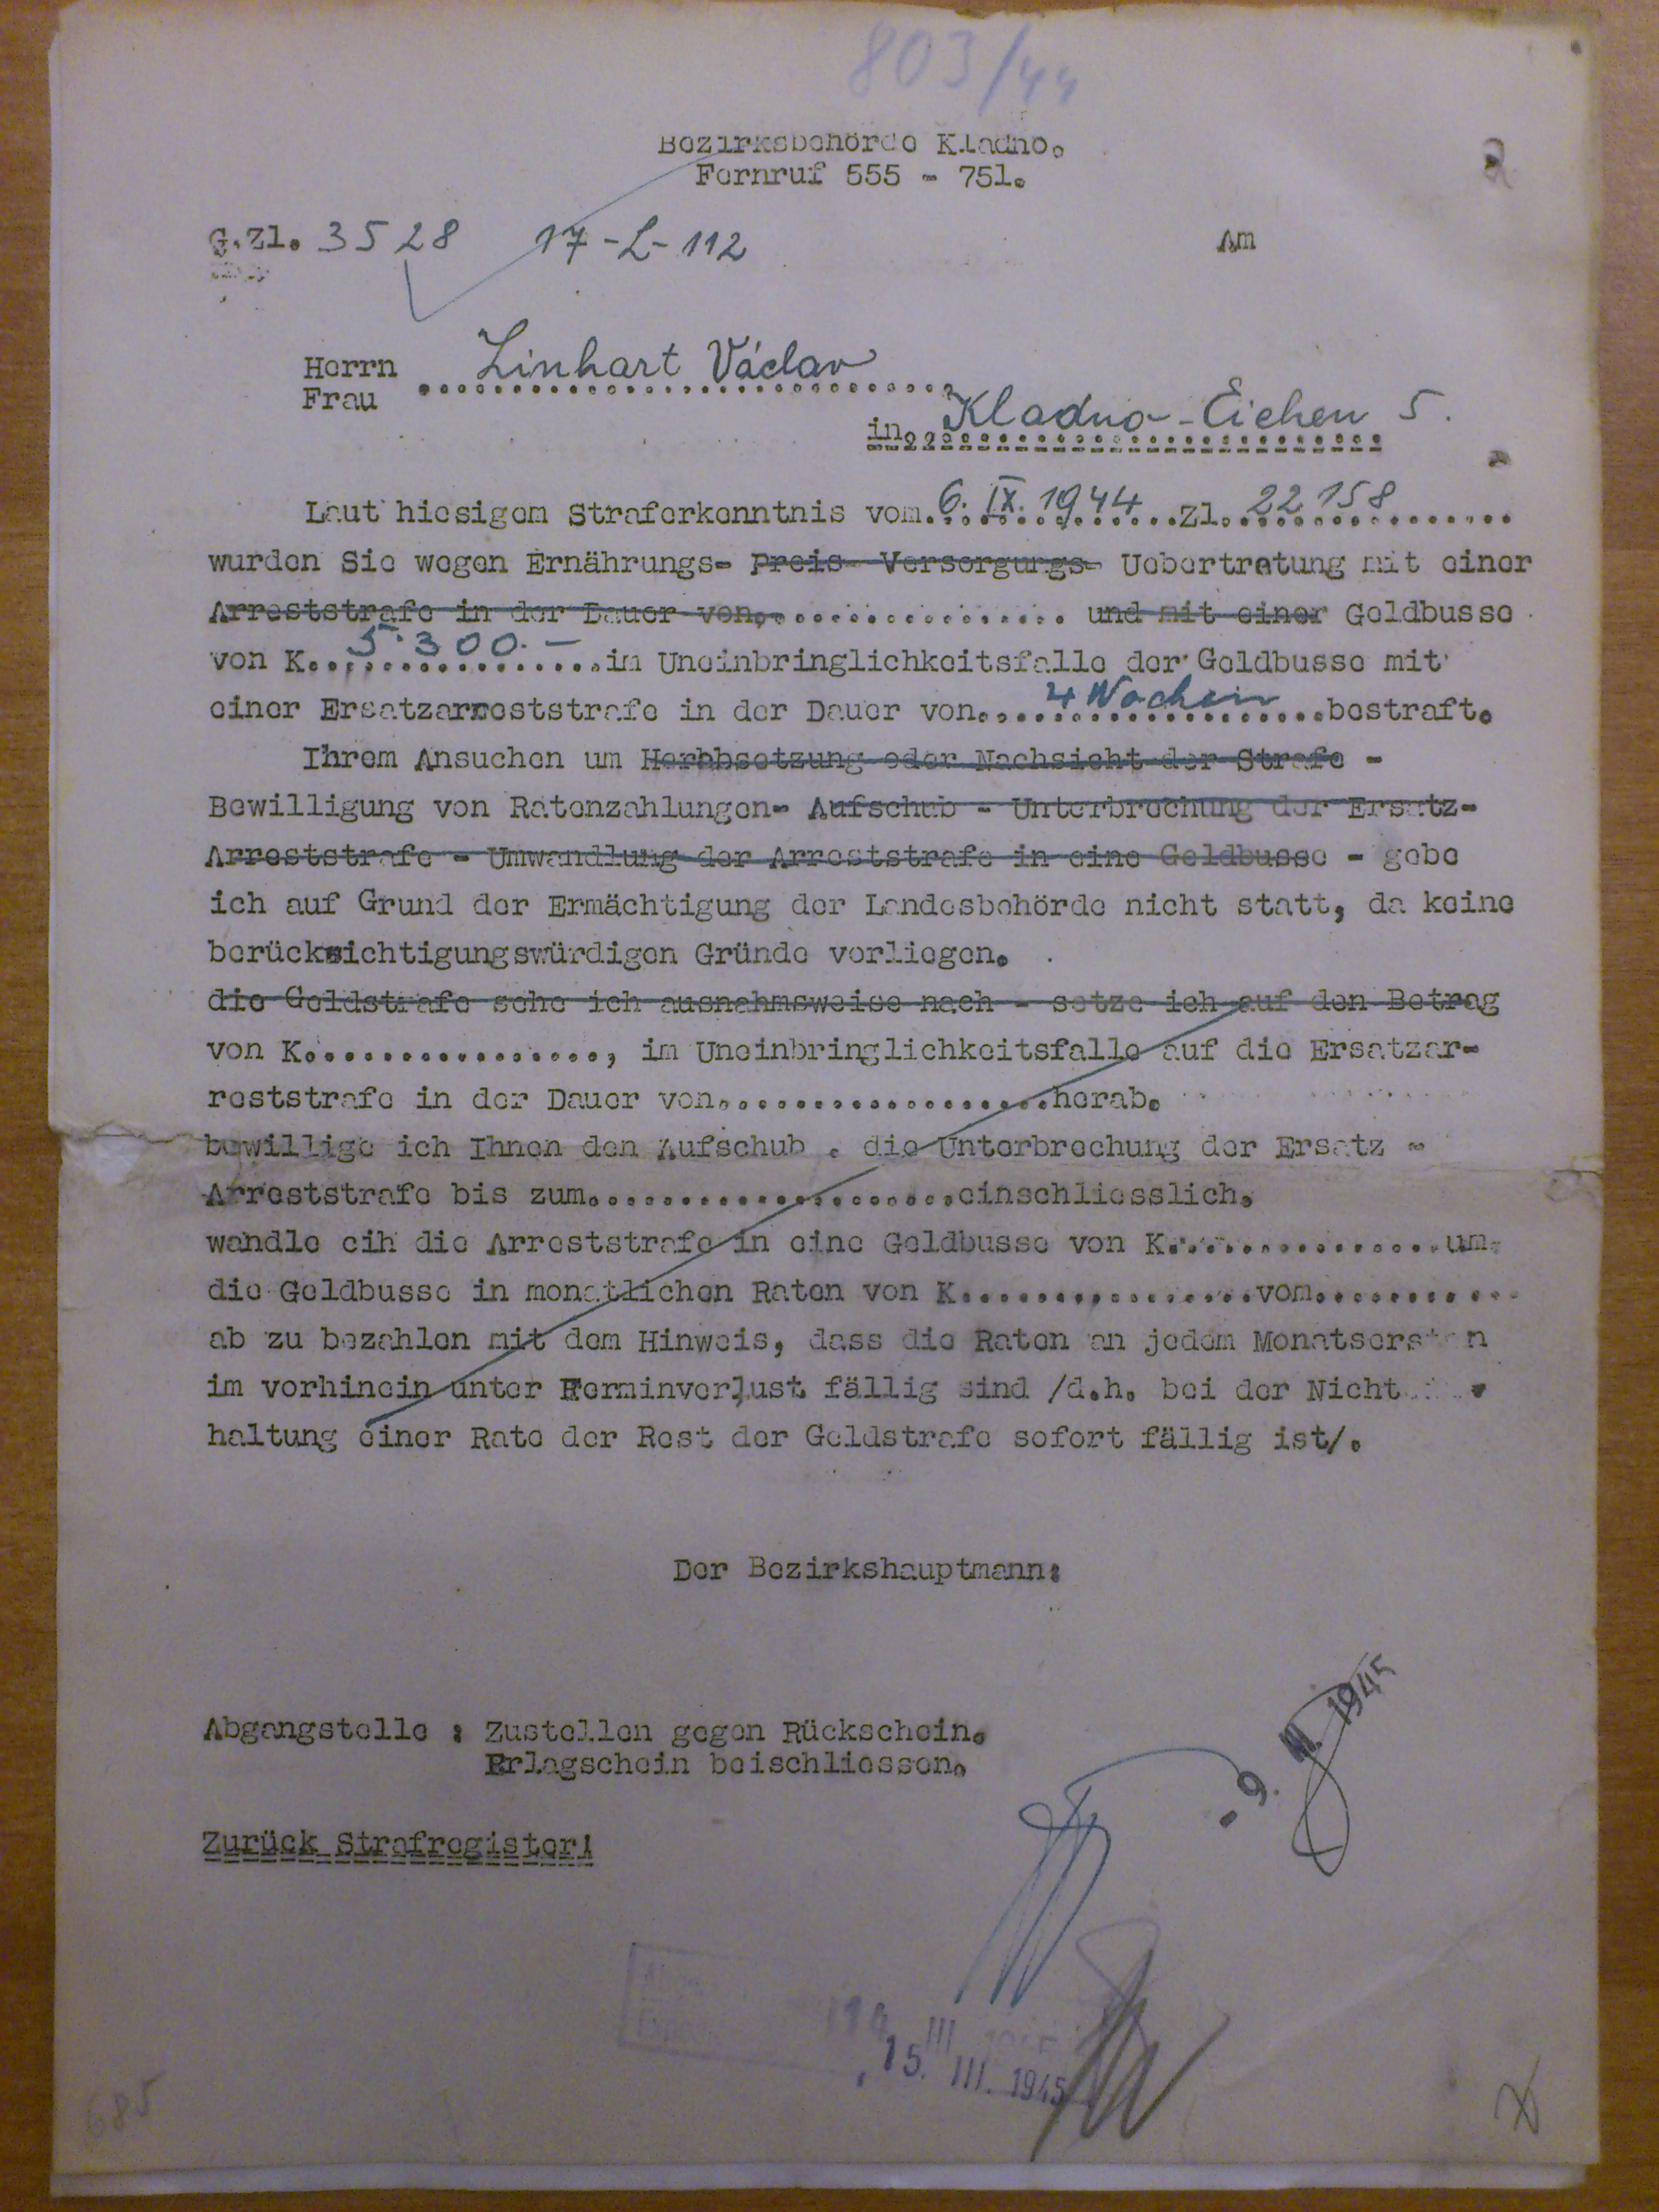 803/44
Bezirksbehörde Kladno.
Fernruf 555 - 751.
2
G.Zl. 3528 17-L-112 Am
Herrn Linhart Václav
Frau
in Kladno-Eichen 5.
Laut hiesigem Straferkenntnis vom 6. IX. 1944 Zl. 22158
wurden Sie wegen Ernährungs- Preis- Versorgungs- Uebertretung mit einer
Arreststrafe in der Dauer von................ und mit einer Geldbusse
von K. 5.300.- im Uneinbringlichkeitsfalle der Geldbusse mit
einer Ersatzarreststrafe in der Dauer von 4 Wochen bestraft.
Ihrem Ansuchen um Herabsetzung oder Nachsicht der Strafe -
Bewilligung von Ratenzahlungen- Aufschub - Unterbrechung der Ersatz-
Arreststrafe - Umwandlung der Arreststrafe in eine Geldbusse - gebe
ich auf Grund der Ermächtigung der Landesbehörde nicht statt, da keine
berücksichtigungswürdigen Gründe vorliegen.
die Geldstrafe sehe ich ausnahmsweise nach - setze ich auf den Betrag
von K................, im Uneinbringlichkeitsfalle auf die Ersatzar-
reststrafe in der Dauer von..................herab.
bewillige ich Ihnen den Aufschub . die Unterbrechung der Ersatz -
Arreststrafe bis zum....................einschliesslich.
wandle cih die Arreststrafe in eine Geldbusse von K...............um.
die Geldbusse in monatlichen Raten von K................vom...........
ab zu bezahlen mit dem Hinweis, dass die Raten an jedem Monatsersten
im vorhinein unter Terminverlust fällig sind /d.h. bei der Nicht
haltung einer Rate der Rest der Geldstrafe sofort fällig ist/.
Der Bezirkshauptmann:
- 9. III. 1945
Abgangstelle : Zustellen gegen Rückschein.
Erlagschein beischliessen.
Zurück Strafregister!
15. III. 1945
685